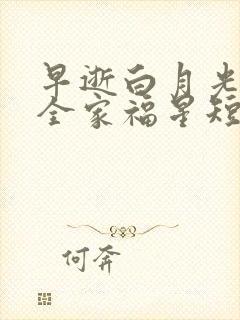 早逝白月光
全家福星短
何奔